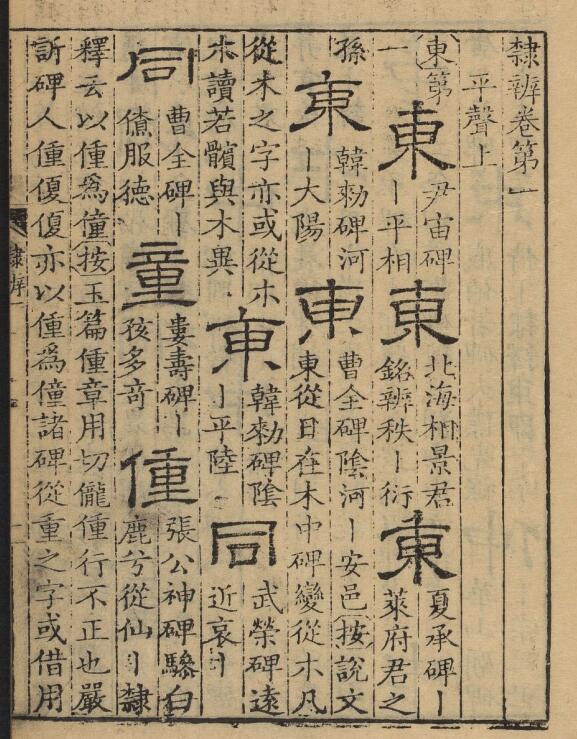 隸辨卷第一
平聲上
東第一
東
尹宙碑
丨平相
東
北海相景君
銘辨秩丨衍
東
夏承碑丨
萊府君之
孫
東
韓勑碑河
丨大陽
東
曹全碑陰河丨安邑按說文
東從日在木中碑變從朩凡
從木之字亦或從朩
朩讀若髕與木異
東
韓勑碑陰
丨平陸
同
武榮碑遠
近哀丨
同
曹全碑丨
僚服德
童
婁壽碑丨
孩多奇
偅
張公神碑驂白
鹿兮從仙丨隸
釋云以偅爲僮按玉篇偅章用切儱偅行不正也嚴
訢碑人偅亦以偅爲僮諸碑從重之字或借用